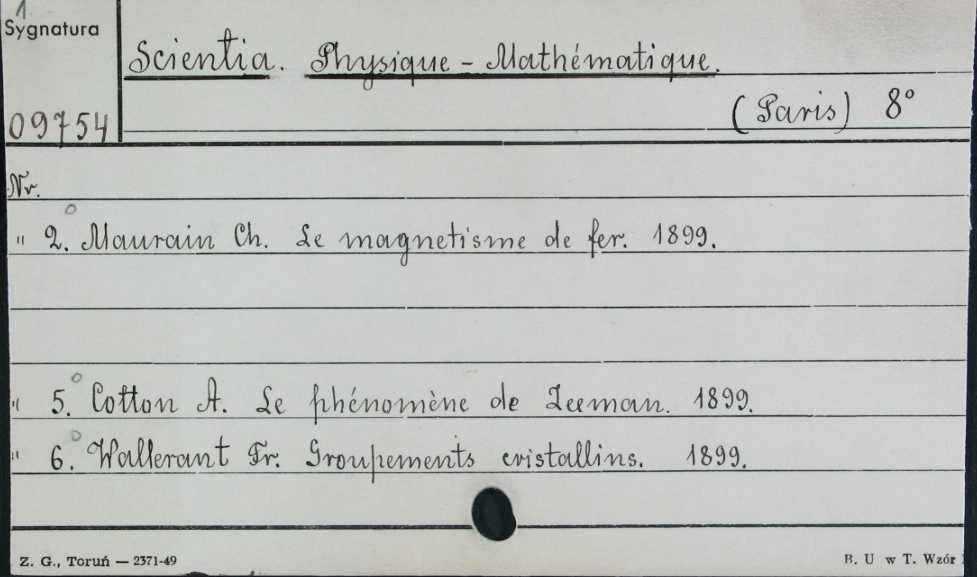 1
Sygnatura
Scientia. Physique - Mathématique.
09754
(Paris) 8°
Nr.
" 2.° Maurain Ch. Le magnetisme de fer. 1899.
" 5.° Cotton A. Le phénomène de Zeeman. 1899.
" 6.° Wallerant Fr. Groupements cristallins. 1899.
Z. G., Toruń — 2371-49
B. U w T. Wzór